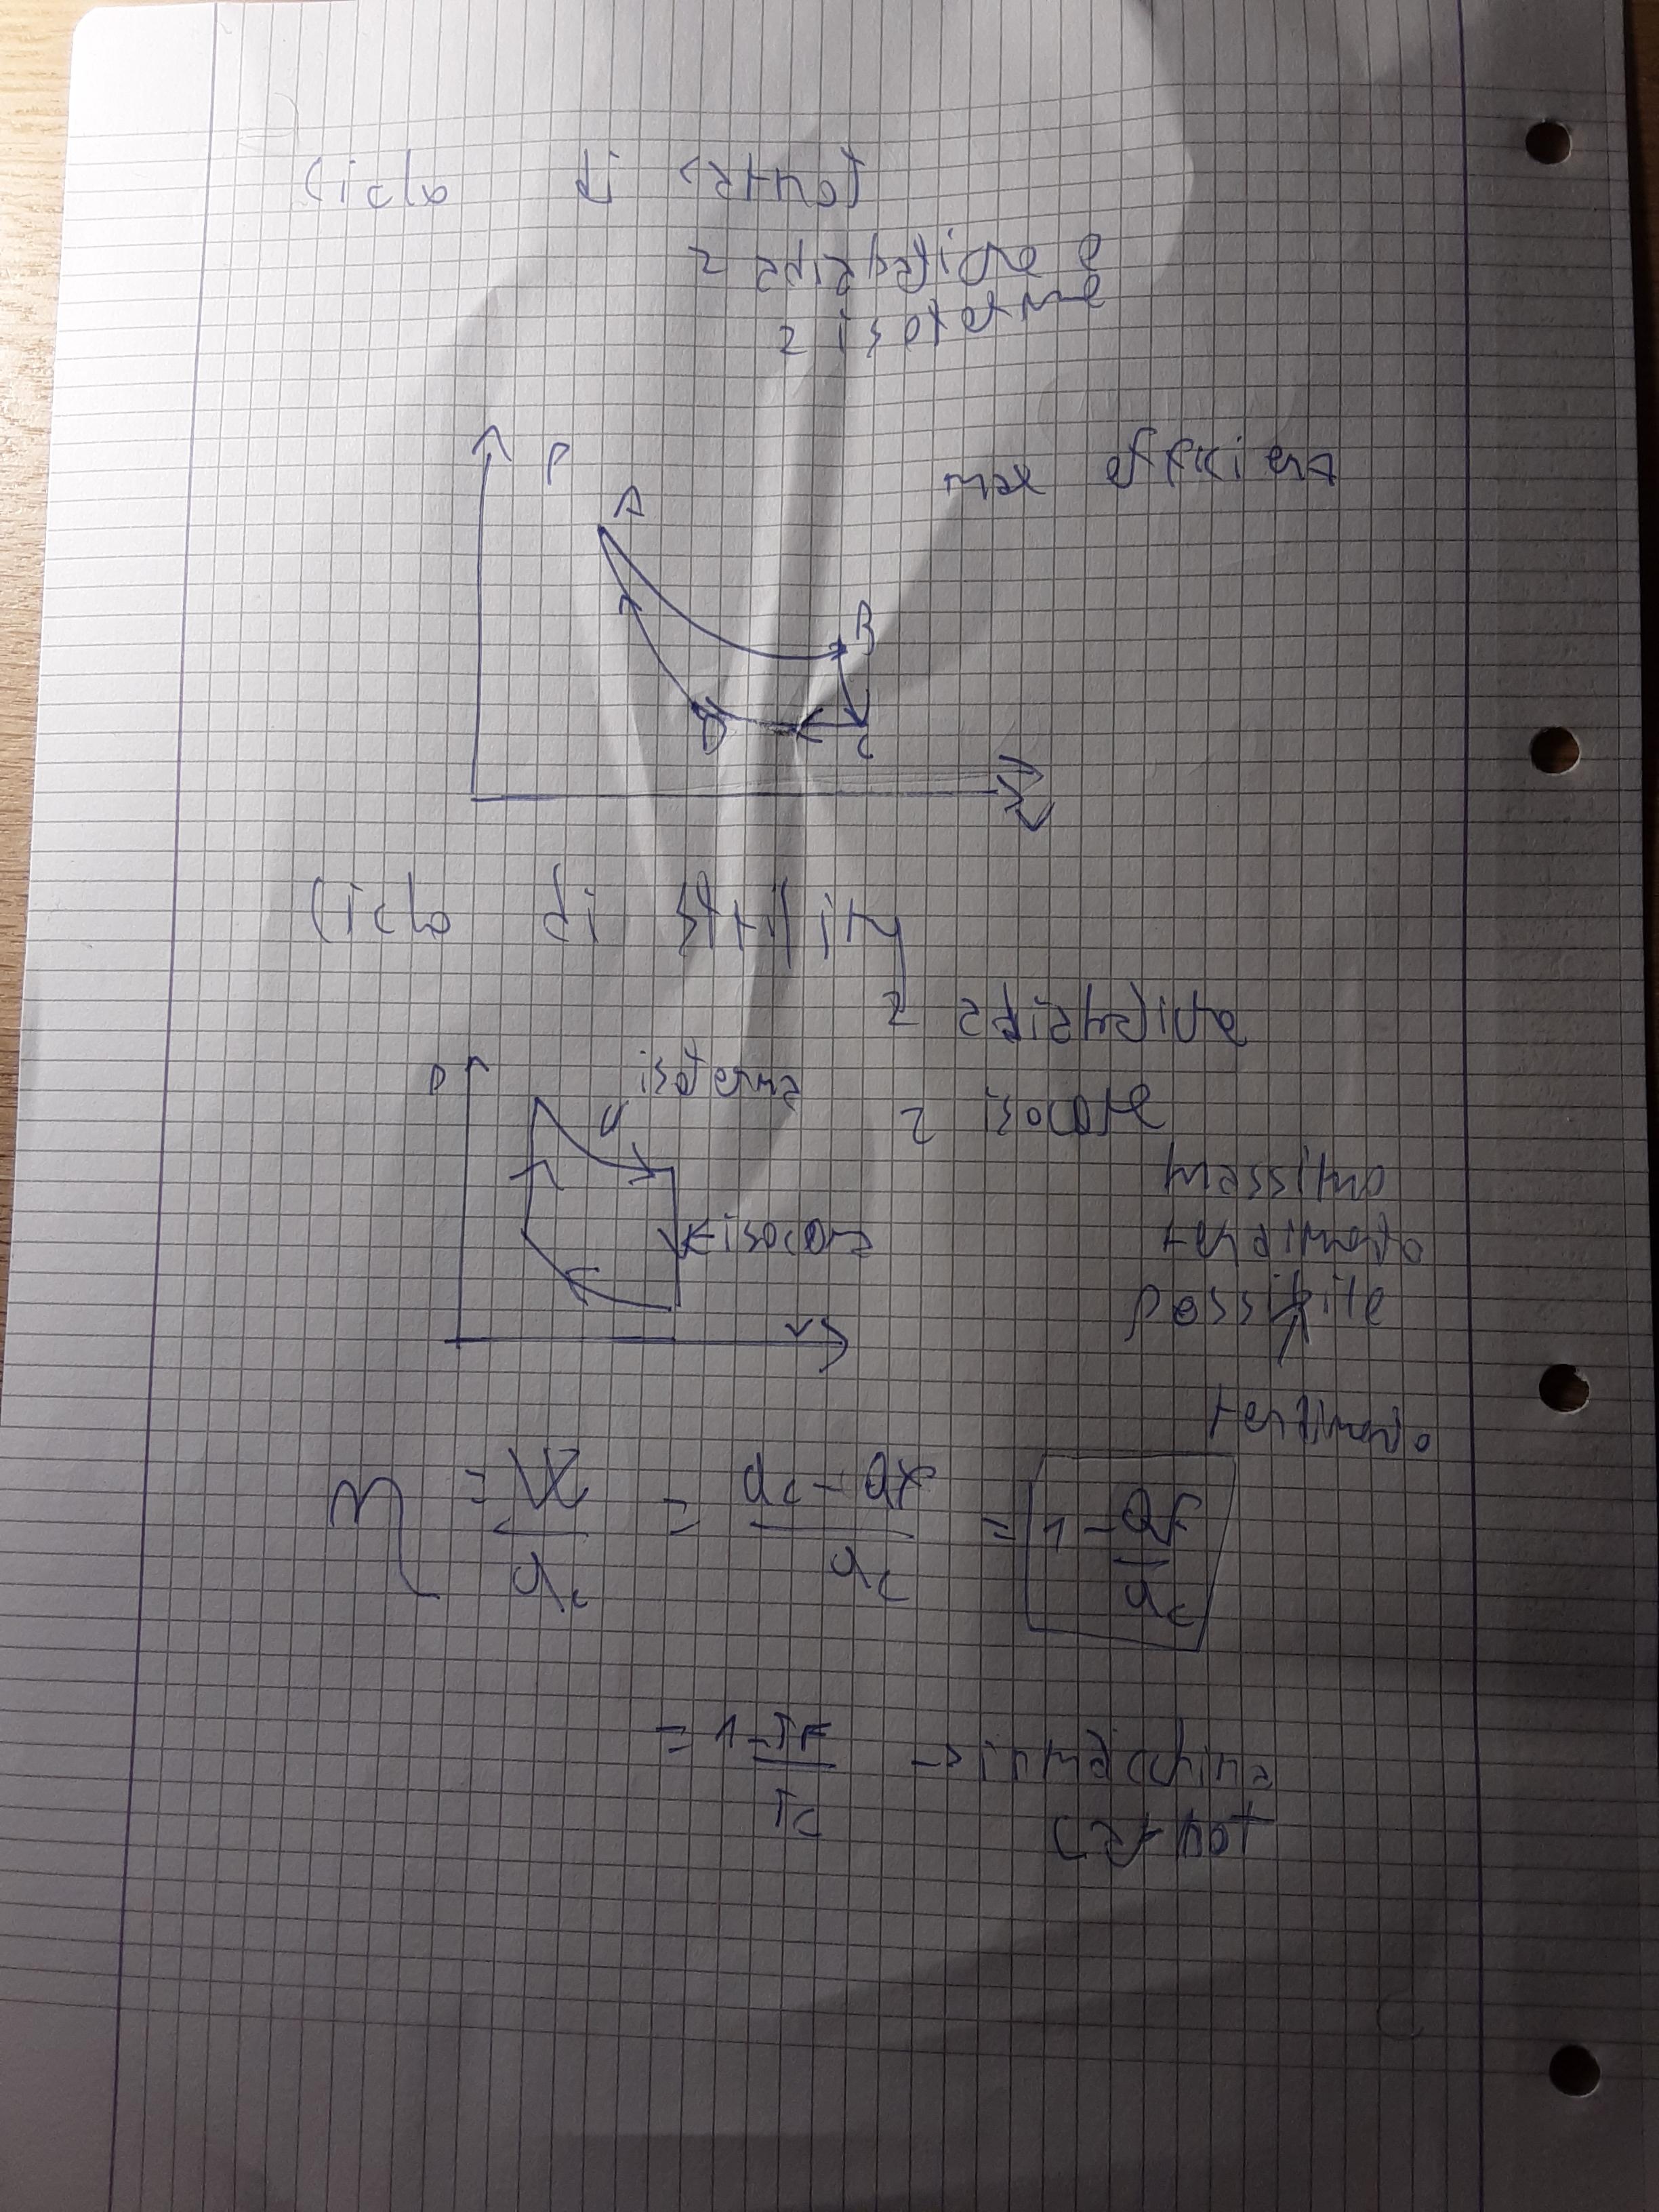 Ciclo di carnot
2 adiabatiche e
2 isoterme
P
max efficienza
A
B
D
C
V
Ciclo di Stirling
2 adiabatiche
P
isoterma
2 isocore
massimo
isocora
rendimento
possibile
V
rendimento
η = W/Qc = Qc - QF/Qc = 1 - QF/Qc
= 1 - TF/Tc -> in macchina
Carnot